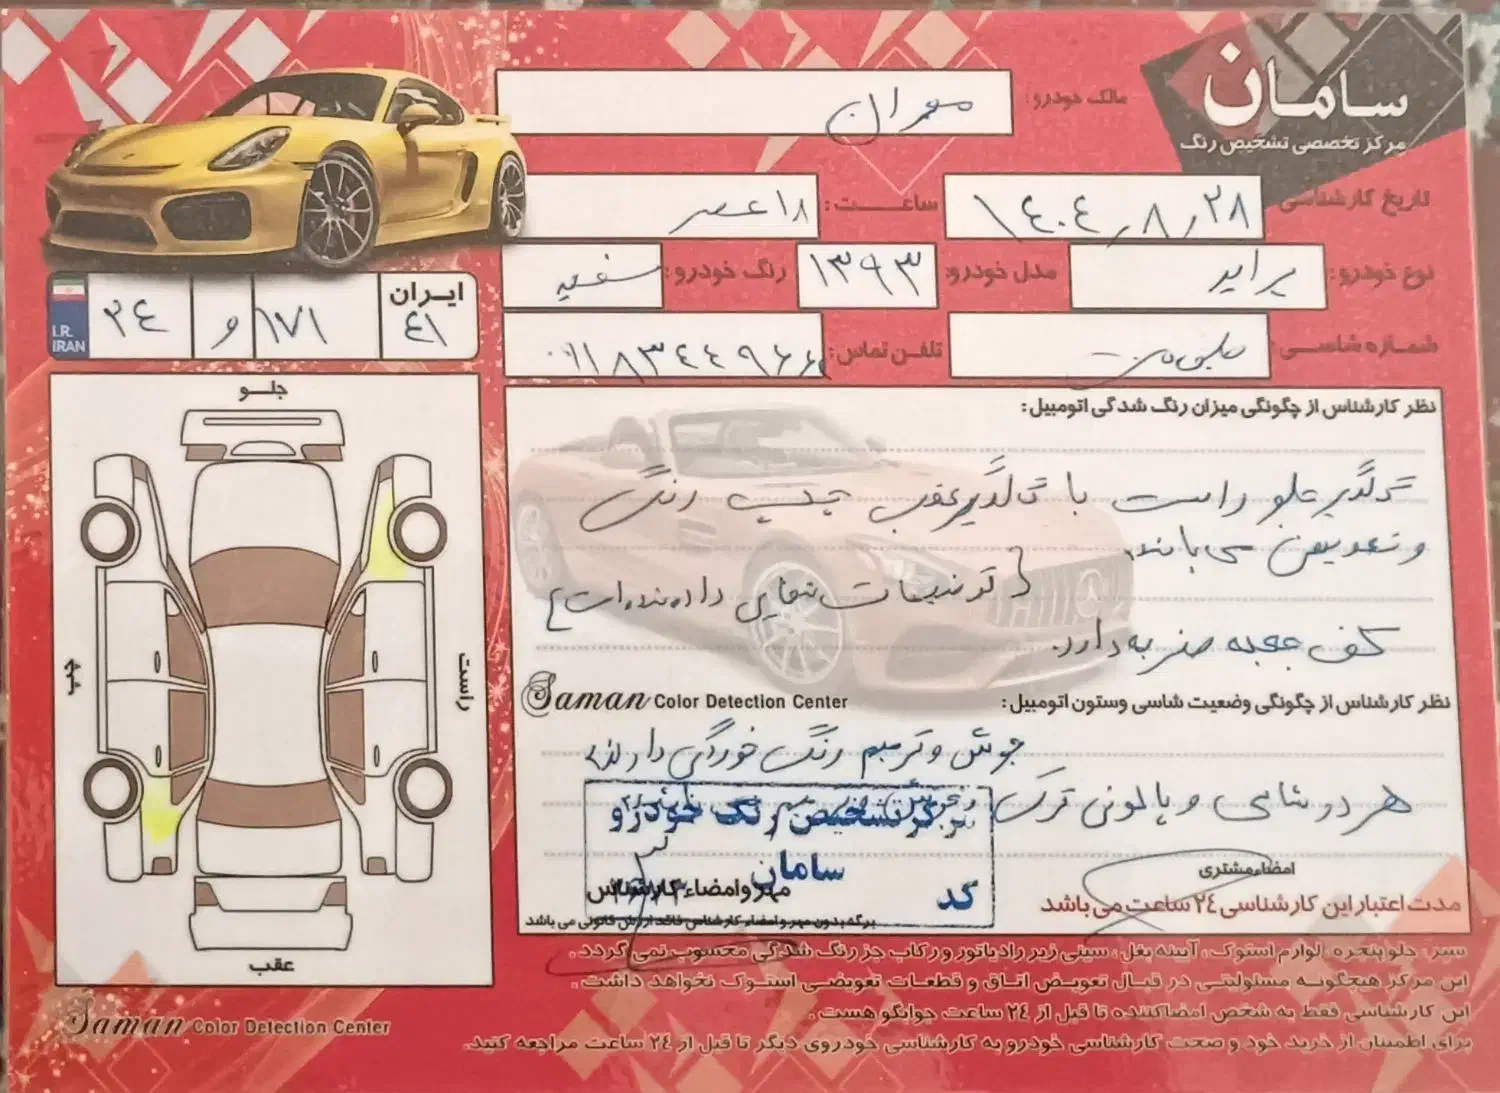 سامان
مرکز تخصصی تشخیص رنگ
مالک خودرو: مهران
تاریخ کارشناسی: ۱۴۰۴/۸/۲۸
ساعت: ۱۸ عصر
نوع خودرو: پراید
مدل خودرو: ۱۳۹۳
رنگ خودرو: سفید
شماره شاسی:
تلفن تماس:
ایران
۳۴ و ۱۷۱ ۴۱
I.R.
IRAN
جلو
راست
چپ
عقب
نظر کارشناس از چگونگی میزان رنگ شدگی اتومبیل:
گلگیر جلو راست با گلگیر عقب چپ رنگ
و تعویض می باشد.
{ ترمیمات نهایی داده شده است }
کف جعبه ضربه دارد.
Saman Color Detection Center
نظر کارشناس از چگونگی وضعیت شاسی وستون اتومبیل:
جوش و ترمیم رنگ خوردگی دارند
هر دو شاسی و پالونی ترک
مرکز تشخیص رنگ خودرو
سامان
کد
مهر وامضاء کارشناس
امضاء مشتری
مدت اعتبار این کارشناسی ۲۴ ساعت می باشد
برگه بدون مهر و امضاء کارشناس فاقد ارزش قانونی می باشد
سپر، جلو پنجره، لوازم استوک، آیینه بغل، سینی زیر رادیاتور و رکاب جز رنگ شدگی محسوب نمی گردد.
این مرکز هیچگونه مسئولیتی در قبال تعویض اتاق و قطعات تعویضی استوک نخواهد داشت.
این کارشناسی فقط به شخص امضاکننده تا قبل از ۲۴ ساعت جوابگو هست.
برای اطمینان از خرید خود و صحت کارشناسی خودرو به کارشناسی خودروی دیگر تا قبل از ۲۴ ساعت مراجعه کنید.
Saman Color Detection Center